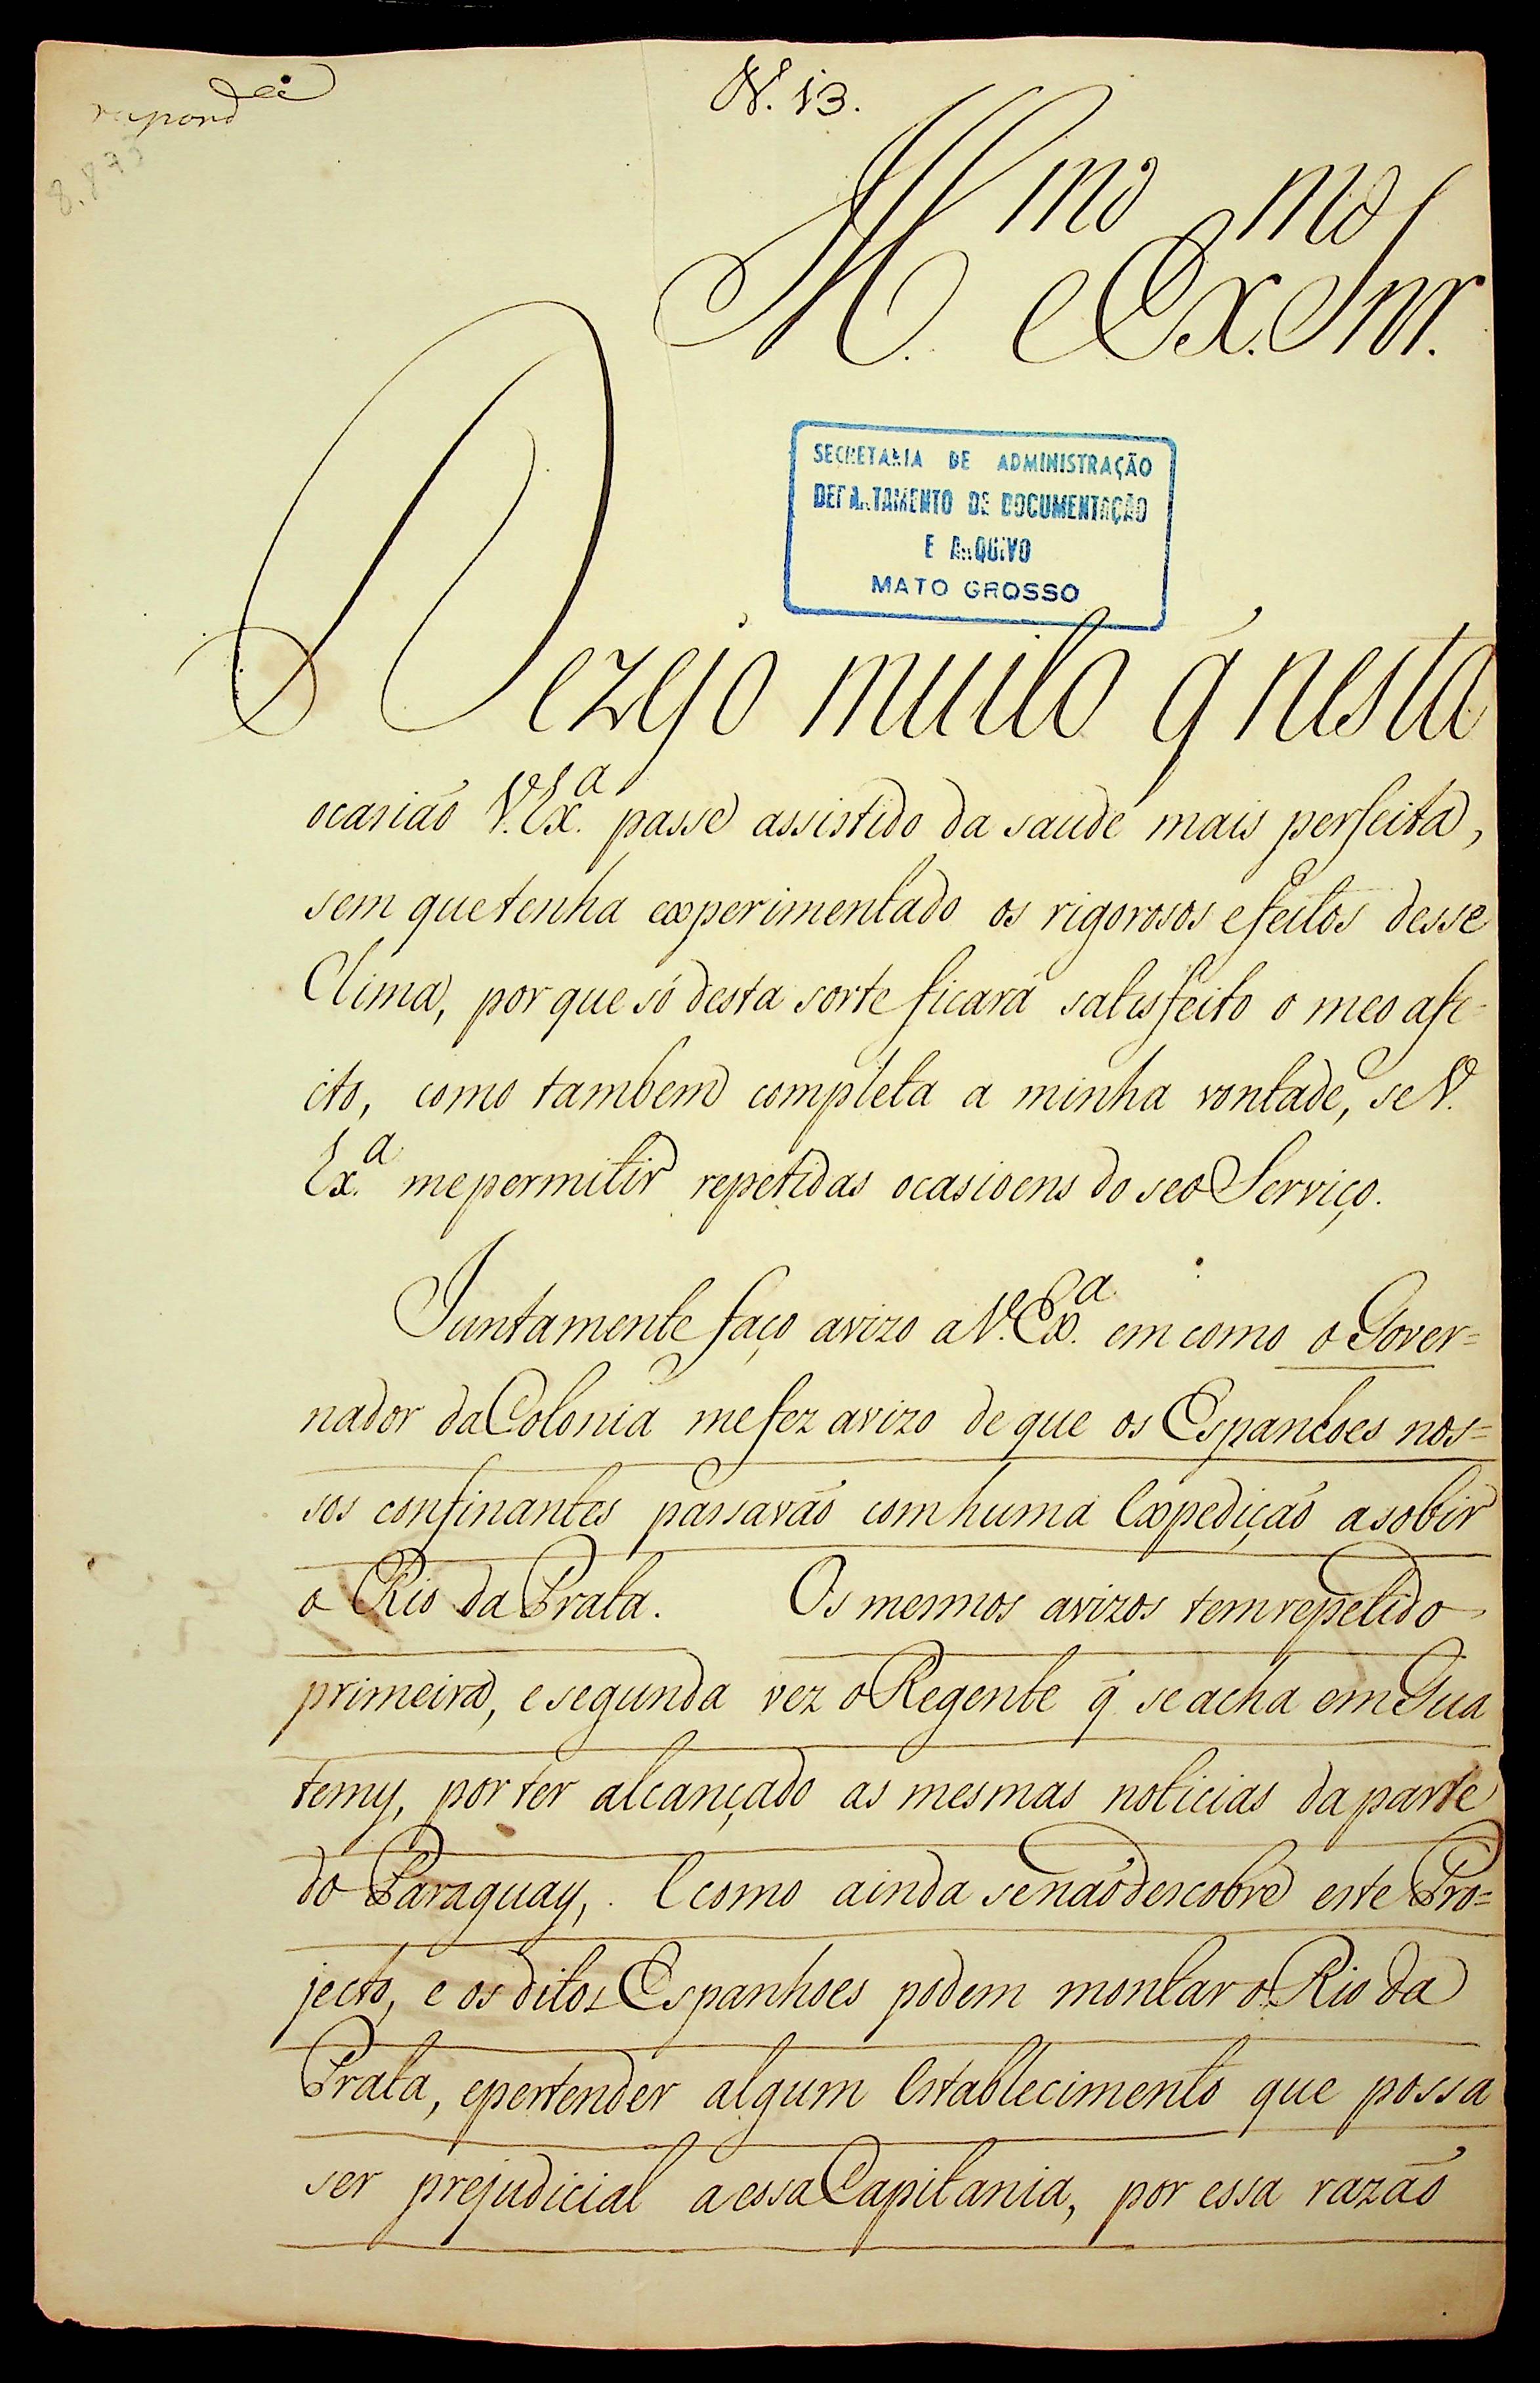 N. 13.
respondda
8.873
Ill.mo e Ex.mo Snr.
SECRETARIA DE ADMINISTRAÇÃO
DEPARTAMENTO DE DOCUMENTAÇÃO
E ARQUIVO
MATO GROSSO
Dezejo muito q̃ nesta
ocasiaõ V. Ex.a passe assistido da saude mais perfeita,
sem que tenha experimentado os rigorosos efeitos desse
Clima, por que só desta sorte ficará satisfeito o meo afe-
cto, como tambem completa a minha vontade, se V.
Ex.a me permitir repetidas ocasioens do seo Serviço.
Juntamente faço avizo a V. Ex.a em como o Gover=
nador da Colonia me fez avizo de que os Espanhoes nos=
sos confinantes passavaõ com huma Expediçaõ a sobir
o Rio da Prata. Os mesmos avizos tem repetido
primeira, e segunda vez o Regente q̃ se acha em Gua
temy, por ter alcançado as mesmas noticias da parte
do Paraguay, E como ainda se naõ descobre este Pro=
jecto, e os ditos Espanhoes podem montar o Rio da
Prata, e pertender algum Establecimento que possa
ser prejudicial a essa Capitania, por essa razaõ